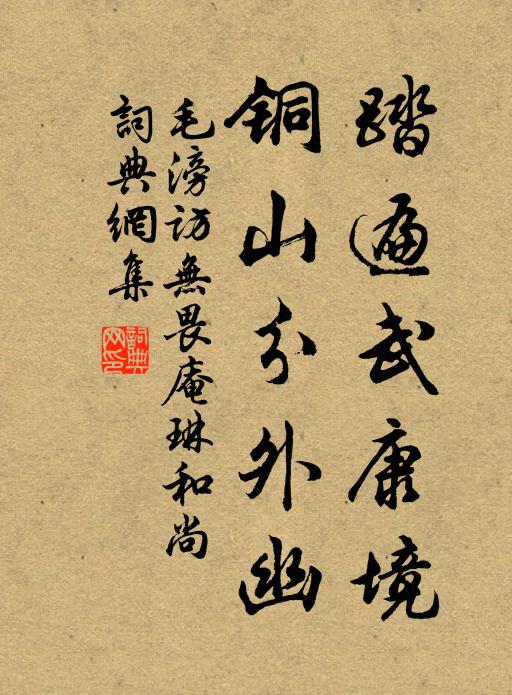 踏遍武康境
銅山分外幽
毛滂訪無畏庵琳和尚
詞典網集
詞典网印